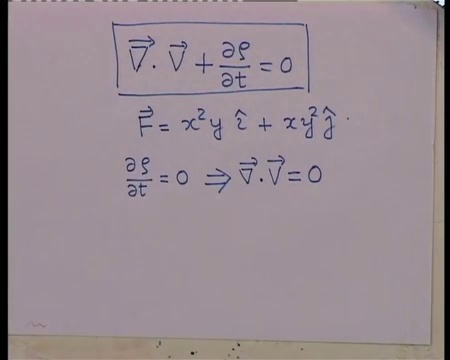 ∇⃗ · V⃗ + ∂ρ/∂t = 0
F⃗ = x²y î + xy² ĵ
∂ρ/∂t = 0 ⇒ ∇⃗ · V⃗ = 0